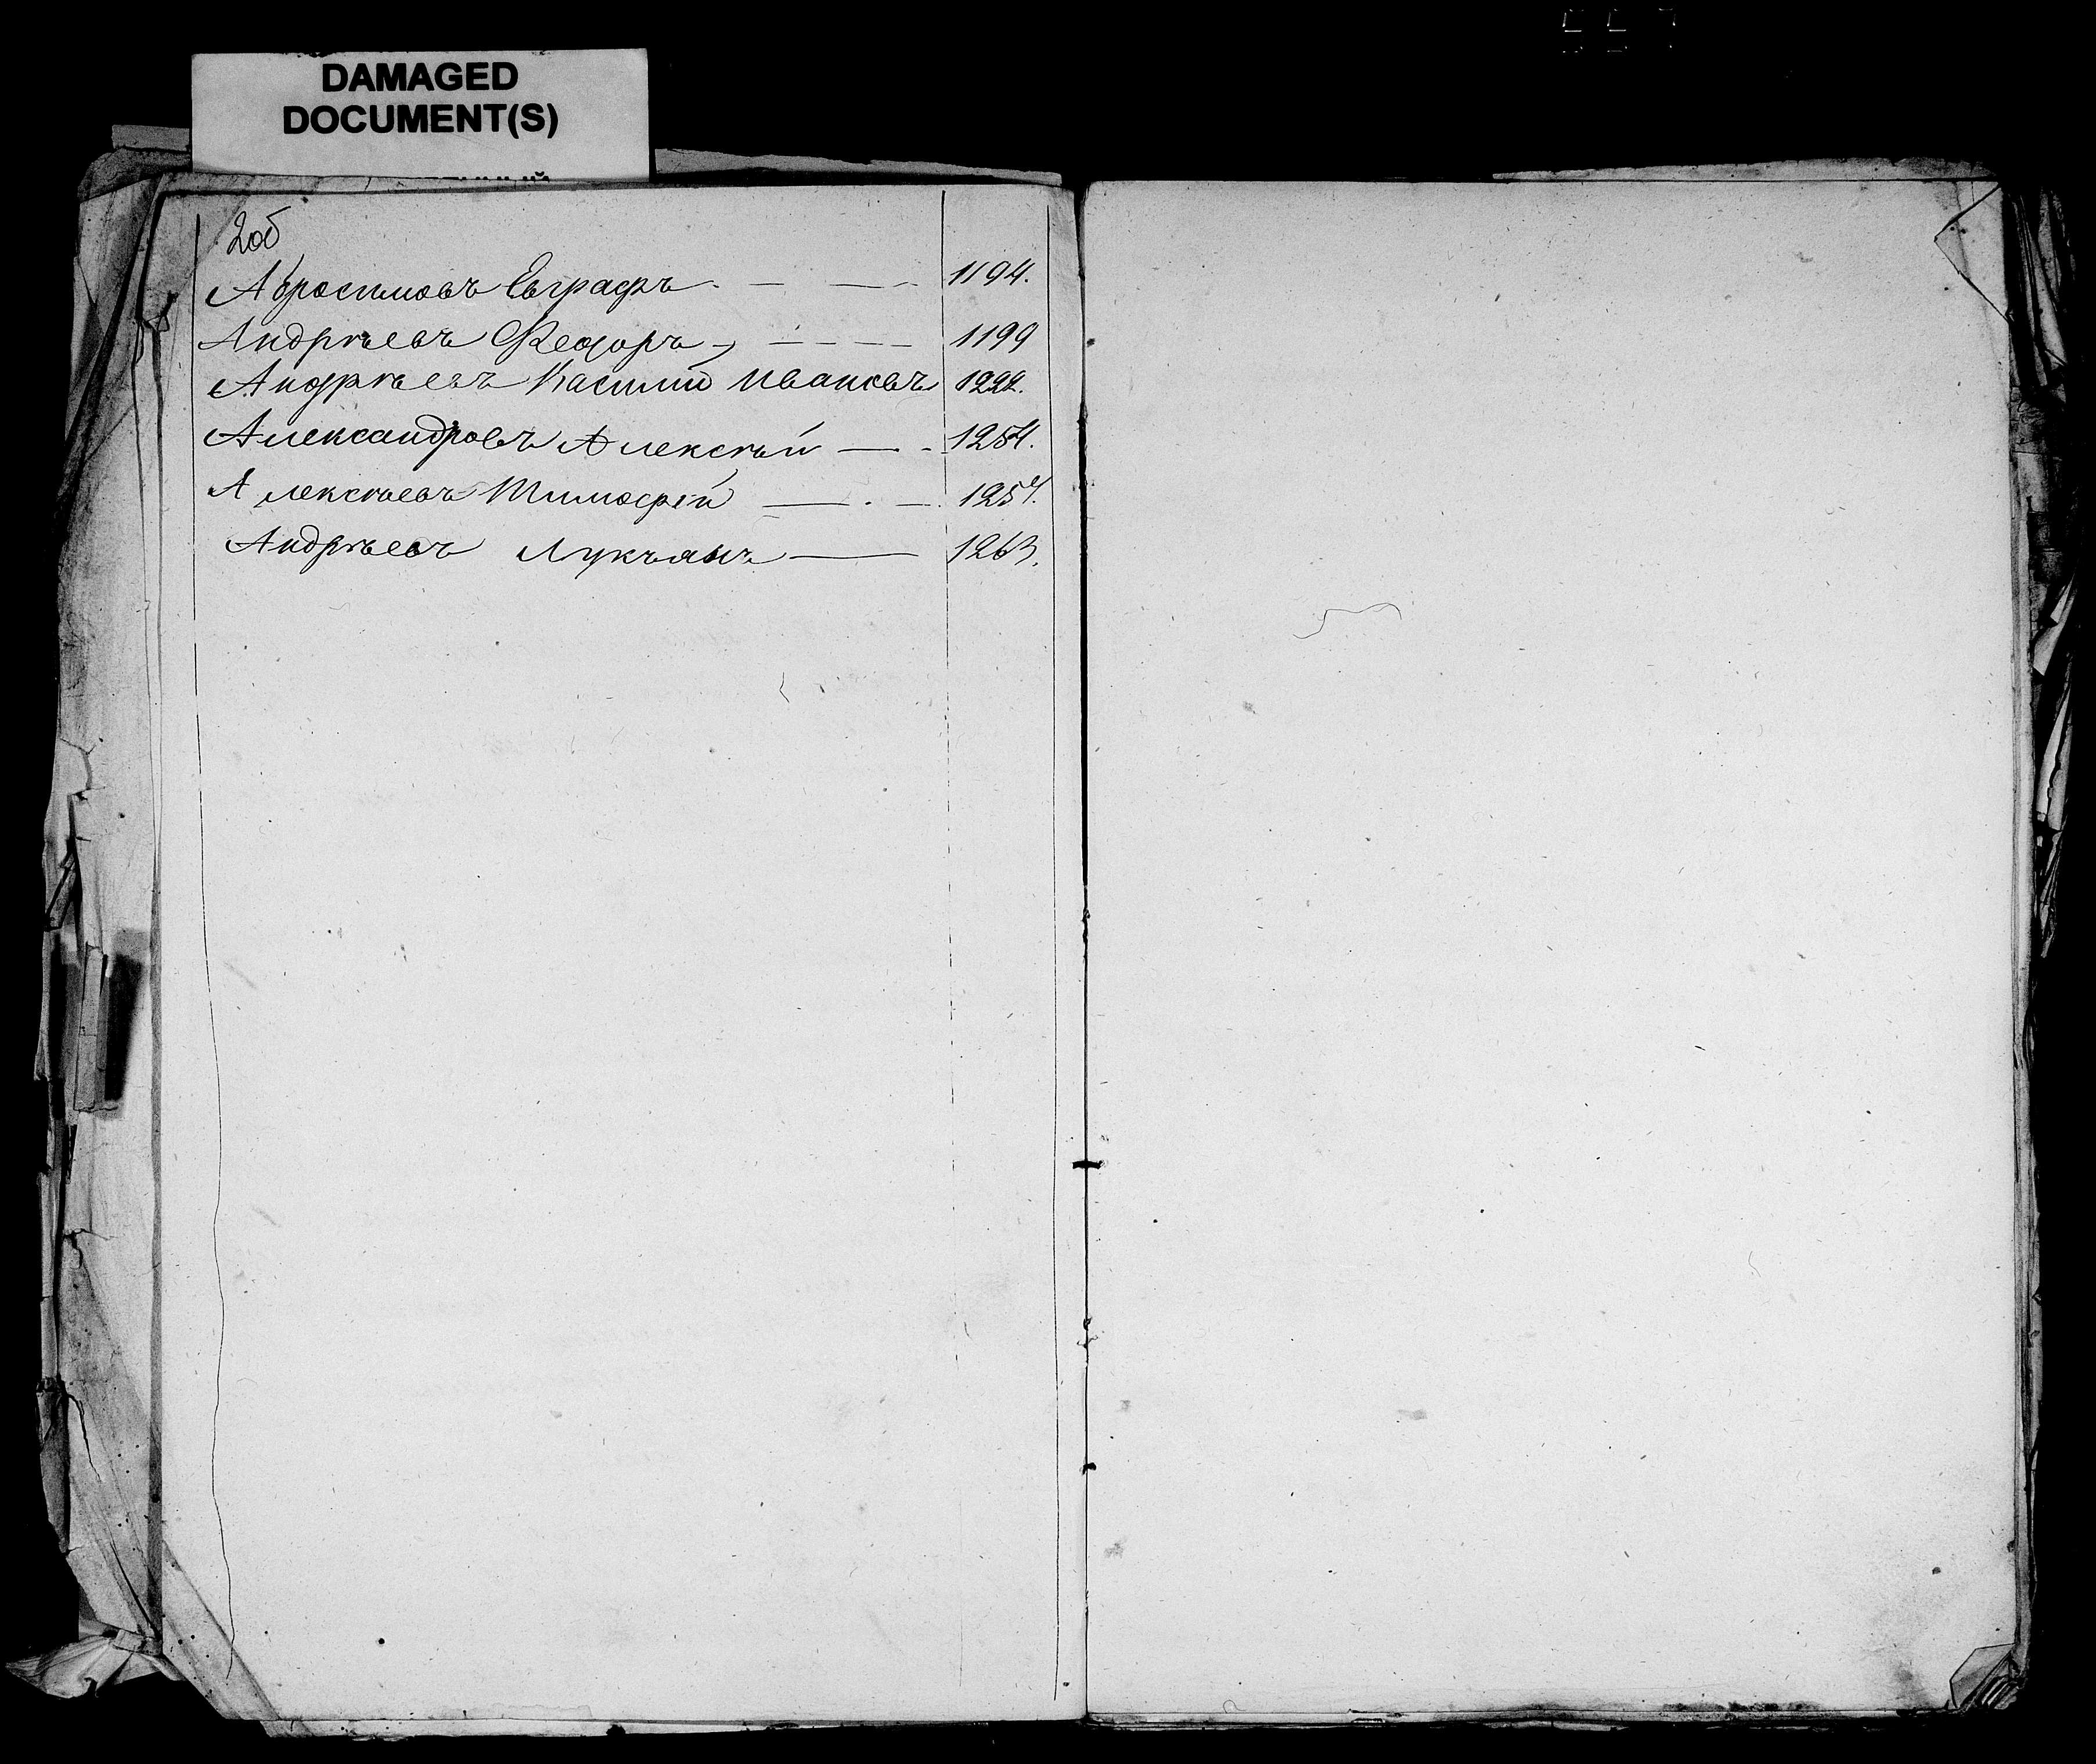 DAMAGED
DOCUMENT(S)
2об
Абросимовъ Евграфъ 1194.
Андрѣевъ Федоръ 1199
Андрѣевъ Василій Ивановъ 1222.
Александровъ Алексѣй 1254.
Алексѣевъ Тимофѣй 1257.
Андрѣевъ Лукъянъ 1263.